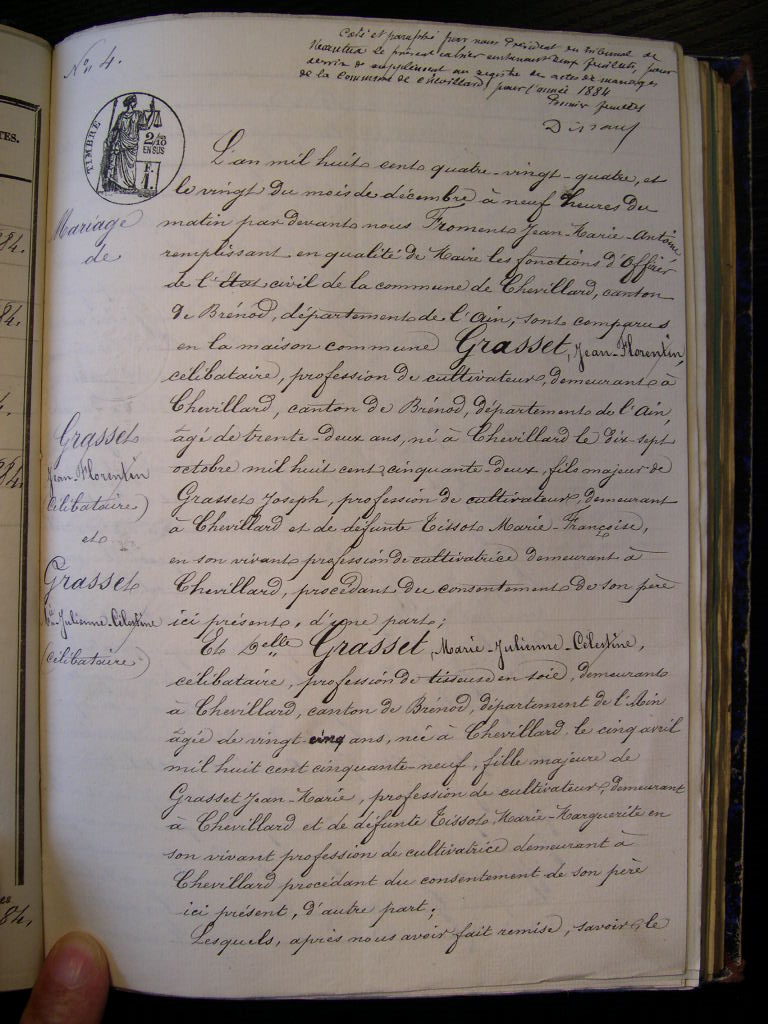 N° 4.
Coté et paraphé par nous Président du tribunal de
Nantua le présent cahier contenant deux feuillets, pour
servir de supplément au registre des actes de mariages
de la Commune de Chevillard, pour l'année 1884
Premier feuillet
TIMBRE
2/10
EN SUS
F.
1.
TES.
84.
84.
84.
84.
Mariage
de
Grasset
Jean-Florentin
(célibataire)
et
Grasset
Julienne-Célestine
(célibataire)
L'an mil huit cent quatre-vingt-quatre, et
le vingt du mois de décembre à neuf heures du
matin par devant nous Froment Jean-Marie-Antoine
remplissant en qualité de Maire les fonctions d'Officier
de l'État civil de la commune de Chevillard, canton
de Brénod, département de l'Ain, sont comparus
en la maison commune Grasset, Jean-Florentin,
célibataire, profession de cultivateur, demeurant à
Chevillard, canton de Brénod, département de l'Ain,
âgé de trente-deux ans, né à Chevillard le dix-sept
octobre mil huit cent cinquante-deux, fils majeur de
Grasset Joseph, profession de cultivateur, demeurant
à Chevillard et de défunte Tissot Marie-Françoise,
en son vivant profession de cultivatrice demeurant à
Chevillard, procédant du consentement de son père
ici présent, d'une part;
Et Delle Grasset, Marie-Julienne-Célestine,
célibataire, profession de tisseuse en soie, demeurant
à Chevillard, canton de Brénod, département de l'Ain
âgée de vingt-cinq ans, née à Chevillard, le cinq avril
mil huit cent cinquante-neuf, fille majeure de
Grasset Jean-Marie, profession de cultivateur, demeurant
à Chevillard et de défunte Tissot Marie-Marguerite en
son vivant profession de cultivatrice demeurant à
Chevillard procédant du consentement de son père
ici présent, d'autre part;
Lesquels, après nous avoir fait remise, savoir, le